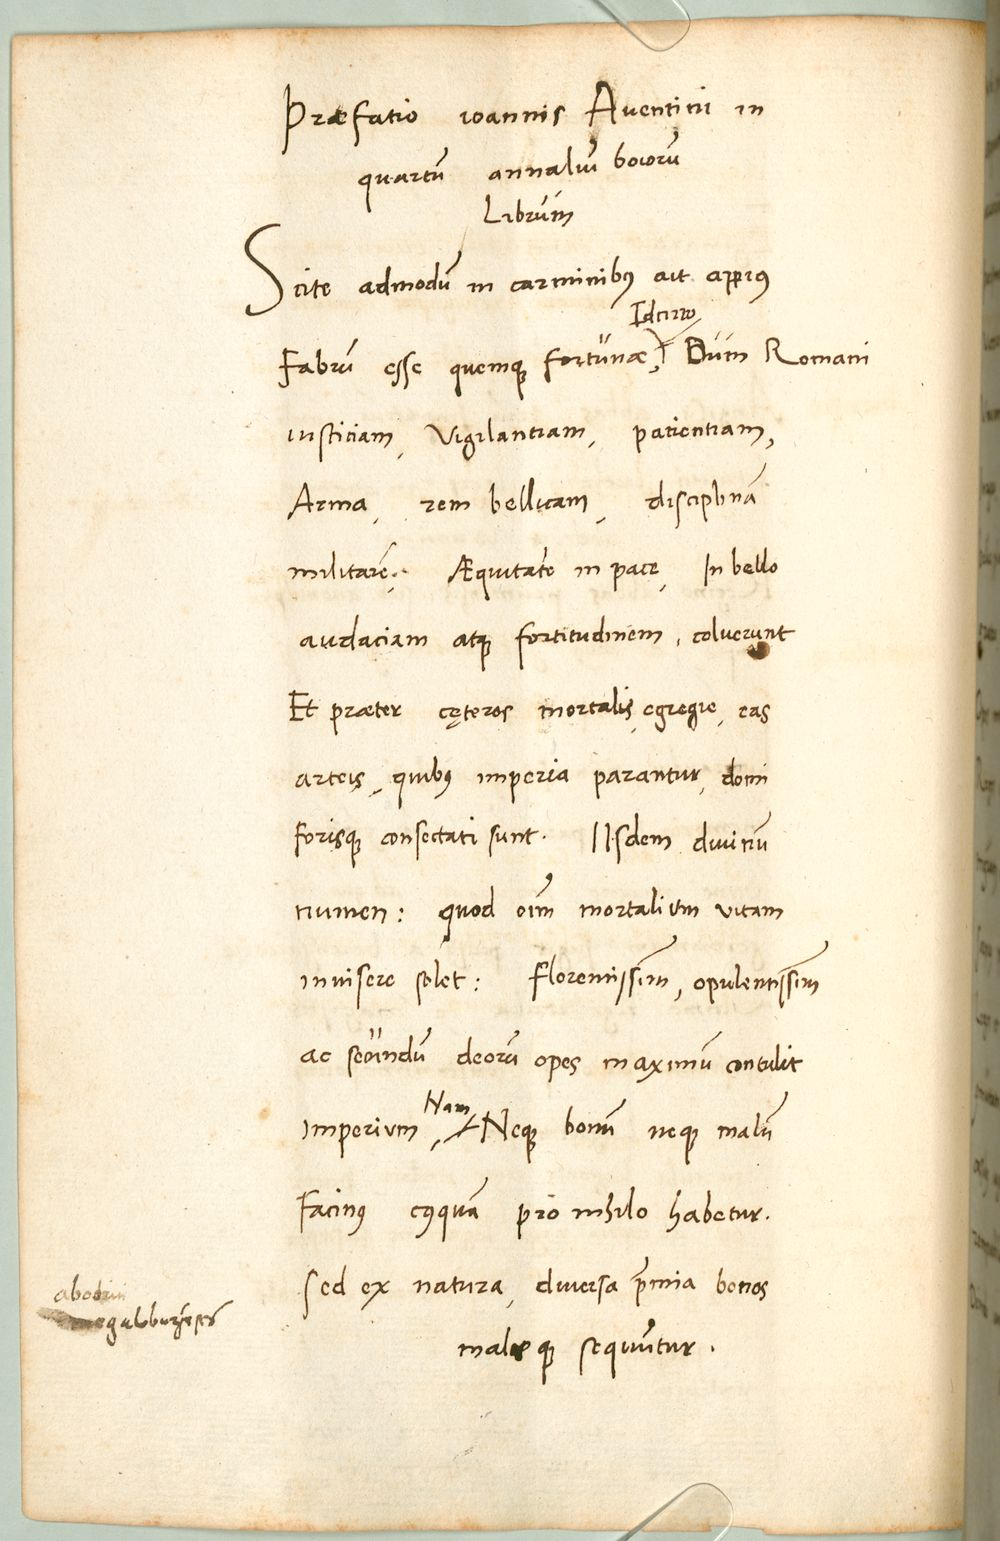 Præfatio ioannis Aventini in
quartū annaliū boiorū
Librum
Scite admodū in carminibꝰ ait appiꝰ
Idcirco
Fabrū esse quemqꝫ fortunæ, Dum Romani
iusticiam, Vigilantiam, patientiam,
Arma, rem bellicam, disciplinā
militarē, Æquitatē in pace, In bello
audaciam atqꝫ fortitudinem, coluerunt
Et præter cęteros mortalis, egregie, eas
arteis, quibꝰ imperia parantur, domi
forisqꝫ consectati sunt. IIsdem diuinū
numen: quod oīm mortalium vitam
inuisere solet: Florentissim̄, opulentissim̄
ac secundū deorū opes maximū contulit
Nam
imperium, Neqꝫ bonū neqꝫ malū
Facinꝰ cꝰquā pro nihilo habetur.
sed ex natura, diuersa p̄mia bonos
malosqꝫ sequūtur.
abodriti